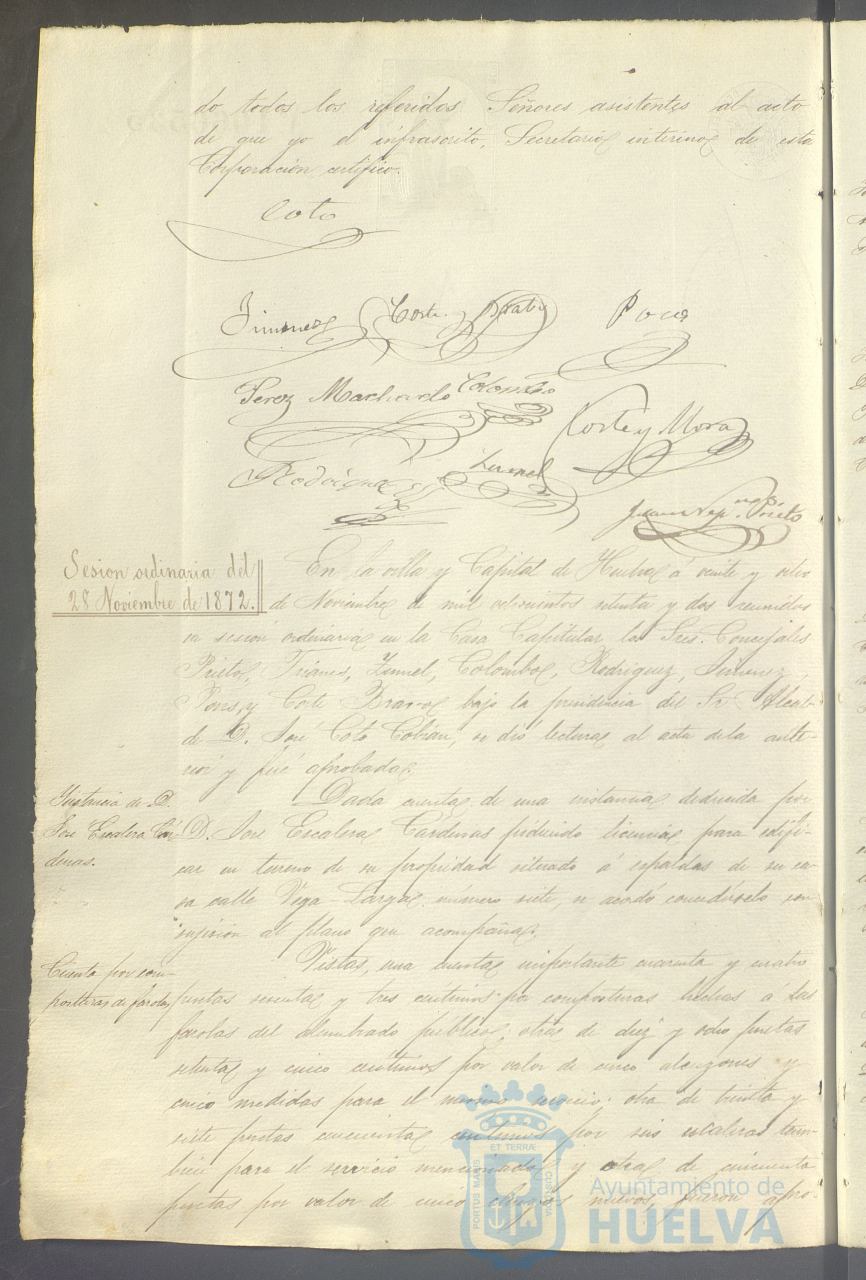 do todos los referidos Señores asistentes al acto
de que yo el infrascrito, Secretario interino de esta
Corporación certifico.
Coto
Jimenez Corte y Bravo Pons
Perez Machado Colombo
Corte y Mora
Rodriguez
Prieto
Sesion ordinaria del
28 Noviembre de 1872.
En la villa y Capital de Huelva á veinte y ocho
de Noviembre de mil ochocientos setenta y dos reunidos
en sesión ordinaria en la Casa Capitular los Sres. Concejales
Prieto, Trianes, Zunel, Colombo, Rodriguez, Jimenez,
Pons, y Corte Bravo bajo la presidencia del Sr. Alcal-
de D. José Coto Cobian, se dió lectura al acta de la ante-
rior y fué aprobada.
Instancia de D.
José Escalera Cár-
denas.
Dada cuenta de una instancia deducida por
D. José Escalera Cárdenas pidiendo licencia para edifi-
car en terreno de su propiedad situado á espaldas de su ca-
sa calle Vega-Larga número siete, se acordó concedérselo con
sujecion al plano que acompaña.
Cuenta por com-
posturas de farolas
Vistas, una cuenta importante cuarenta y cuatro
pesetas sesenta y tres centimos por composturas hechas á las
farolas del alumbrado público; otra de diez y ocho pesetas
setenta y cinco centimos por valor de cinco alcuzones y
cinco medidas para el mismo servicio; otra de treinta y
siete pesetas cincuenta centimos por seis escaleras tam-
bien para el servicio mencionado y otra de cincuenta
pesetas por valor de cinco nuevos, fueron apro-
PORTUS MARIS ET TERRÆ CUSTODIA
Ayuntamiento de
HUELVA